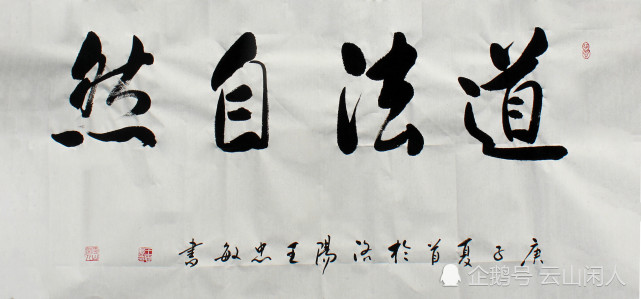 道法自然
庚子夏首於洛陽王忠敏書
企鹅号 云山闲人